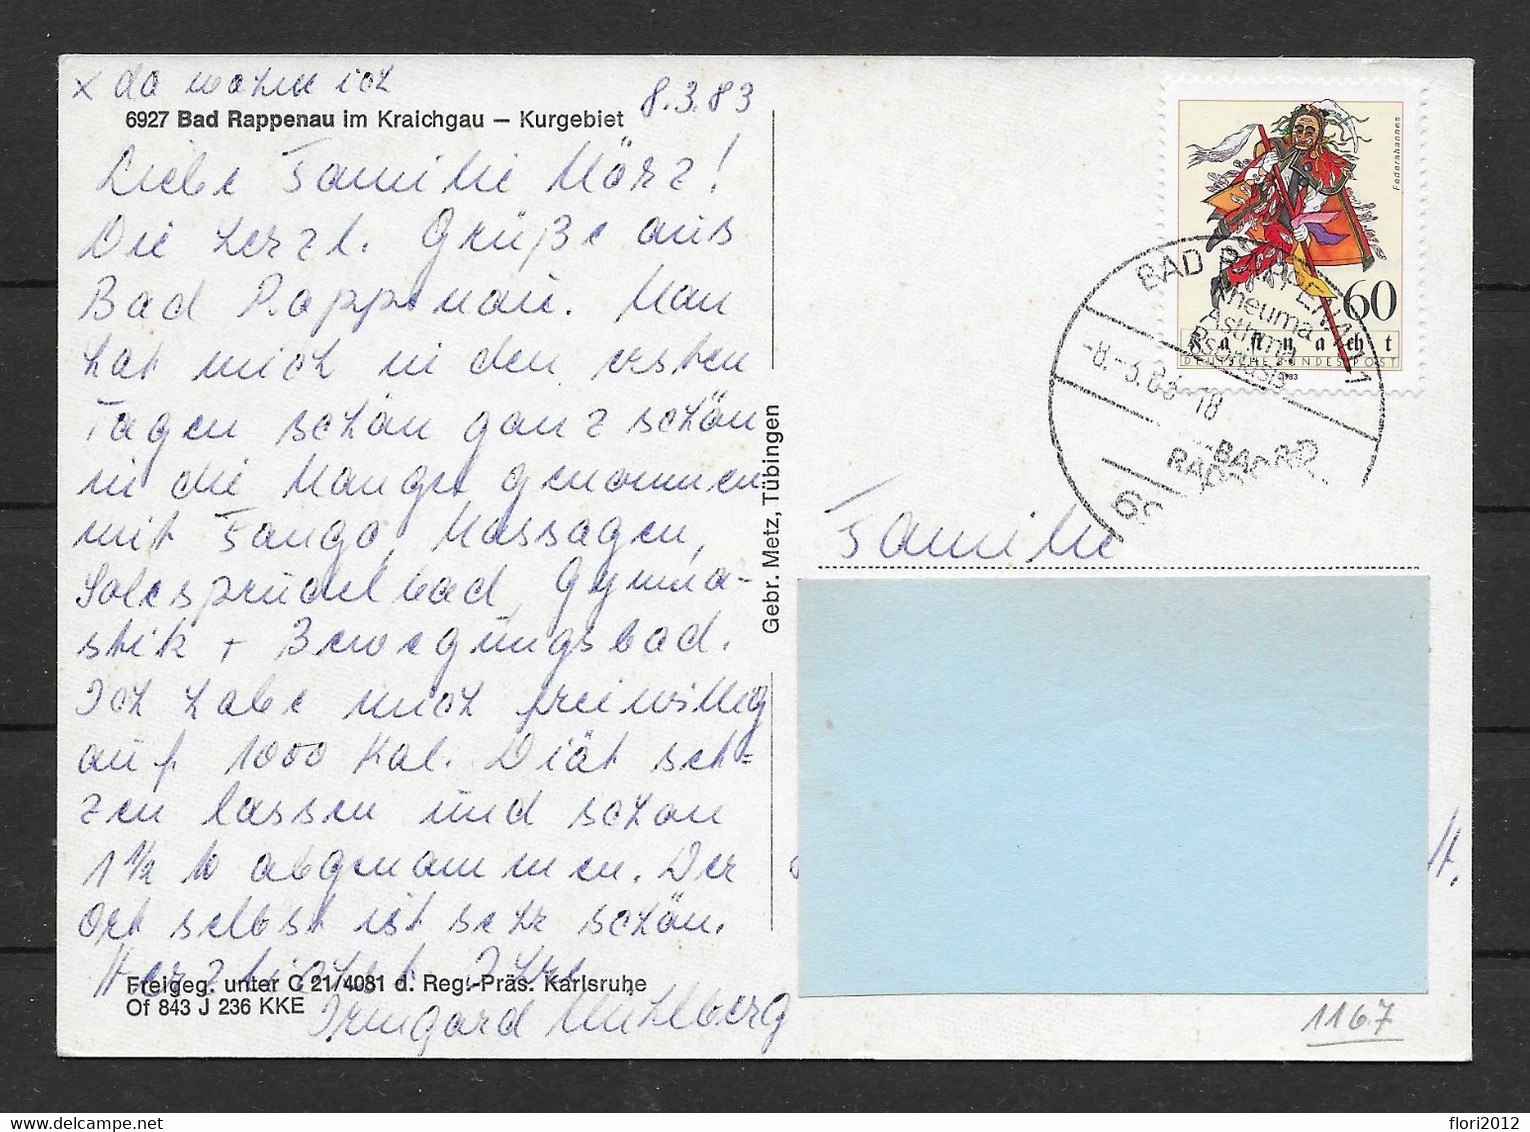 x da wohne ich
8.3.83
6927 Bad Rappenau im Kraichgau – Kurgebiet
Liebe Familie März!
Die herzl. Grüße aus
Bad Rappenau. Man
hat mich in den ersten
Tagen schon ganz schön
in die Mangel genommen
mit Fango, Massagen,
Solesprudelbad, Gymna-
stik + Bewegungsbad.
Ich habe mich freiwillig
auf 1000 Kal. Diät set-
zen lassen und schon
1 1/2 abgenommen. Der
Ort selbst ist sehr schön.
Herzlichst Ihre
Irmgard Mühlberg
Freigeg. unter C 21/4081 d. Reg.-Präs. Karlsruhe
Of 843 J 236 KKE
Gebr. Metz, Tübingen
Federahannes
60
Fastnacht
DEUTSCHE BUNDESPOST
1983
BAD RAPPENAU 1
Rheuma
Asthma
Psoriasis
-8.-3.83-18
BAD
Familie
1167
flori2012